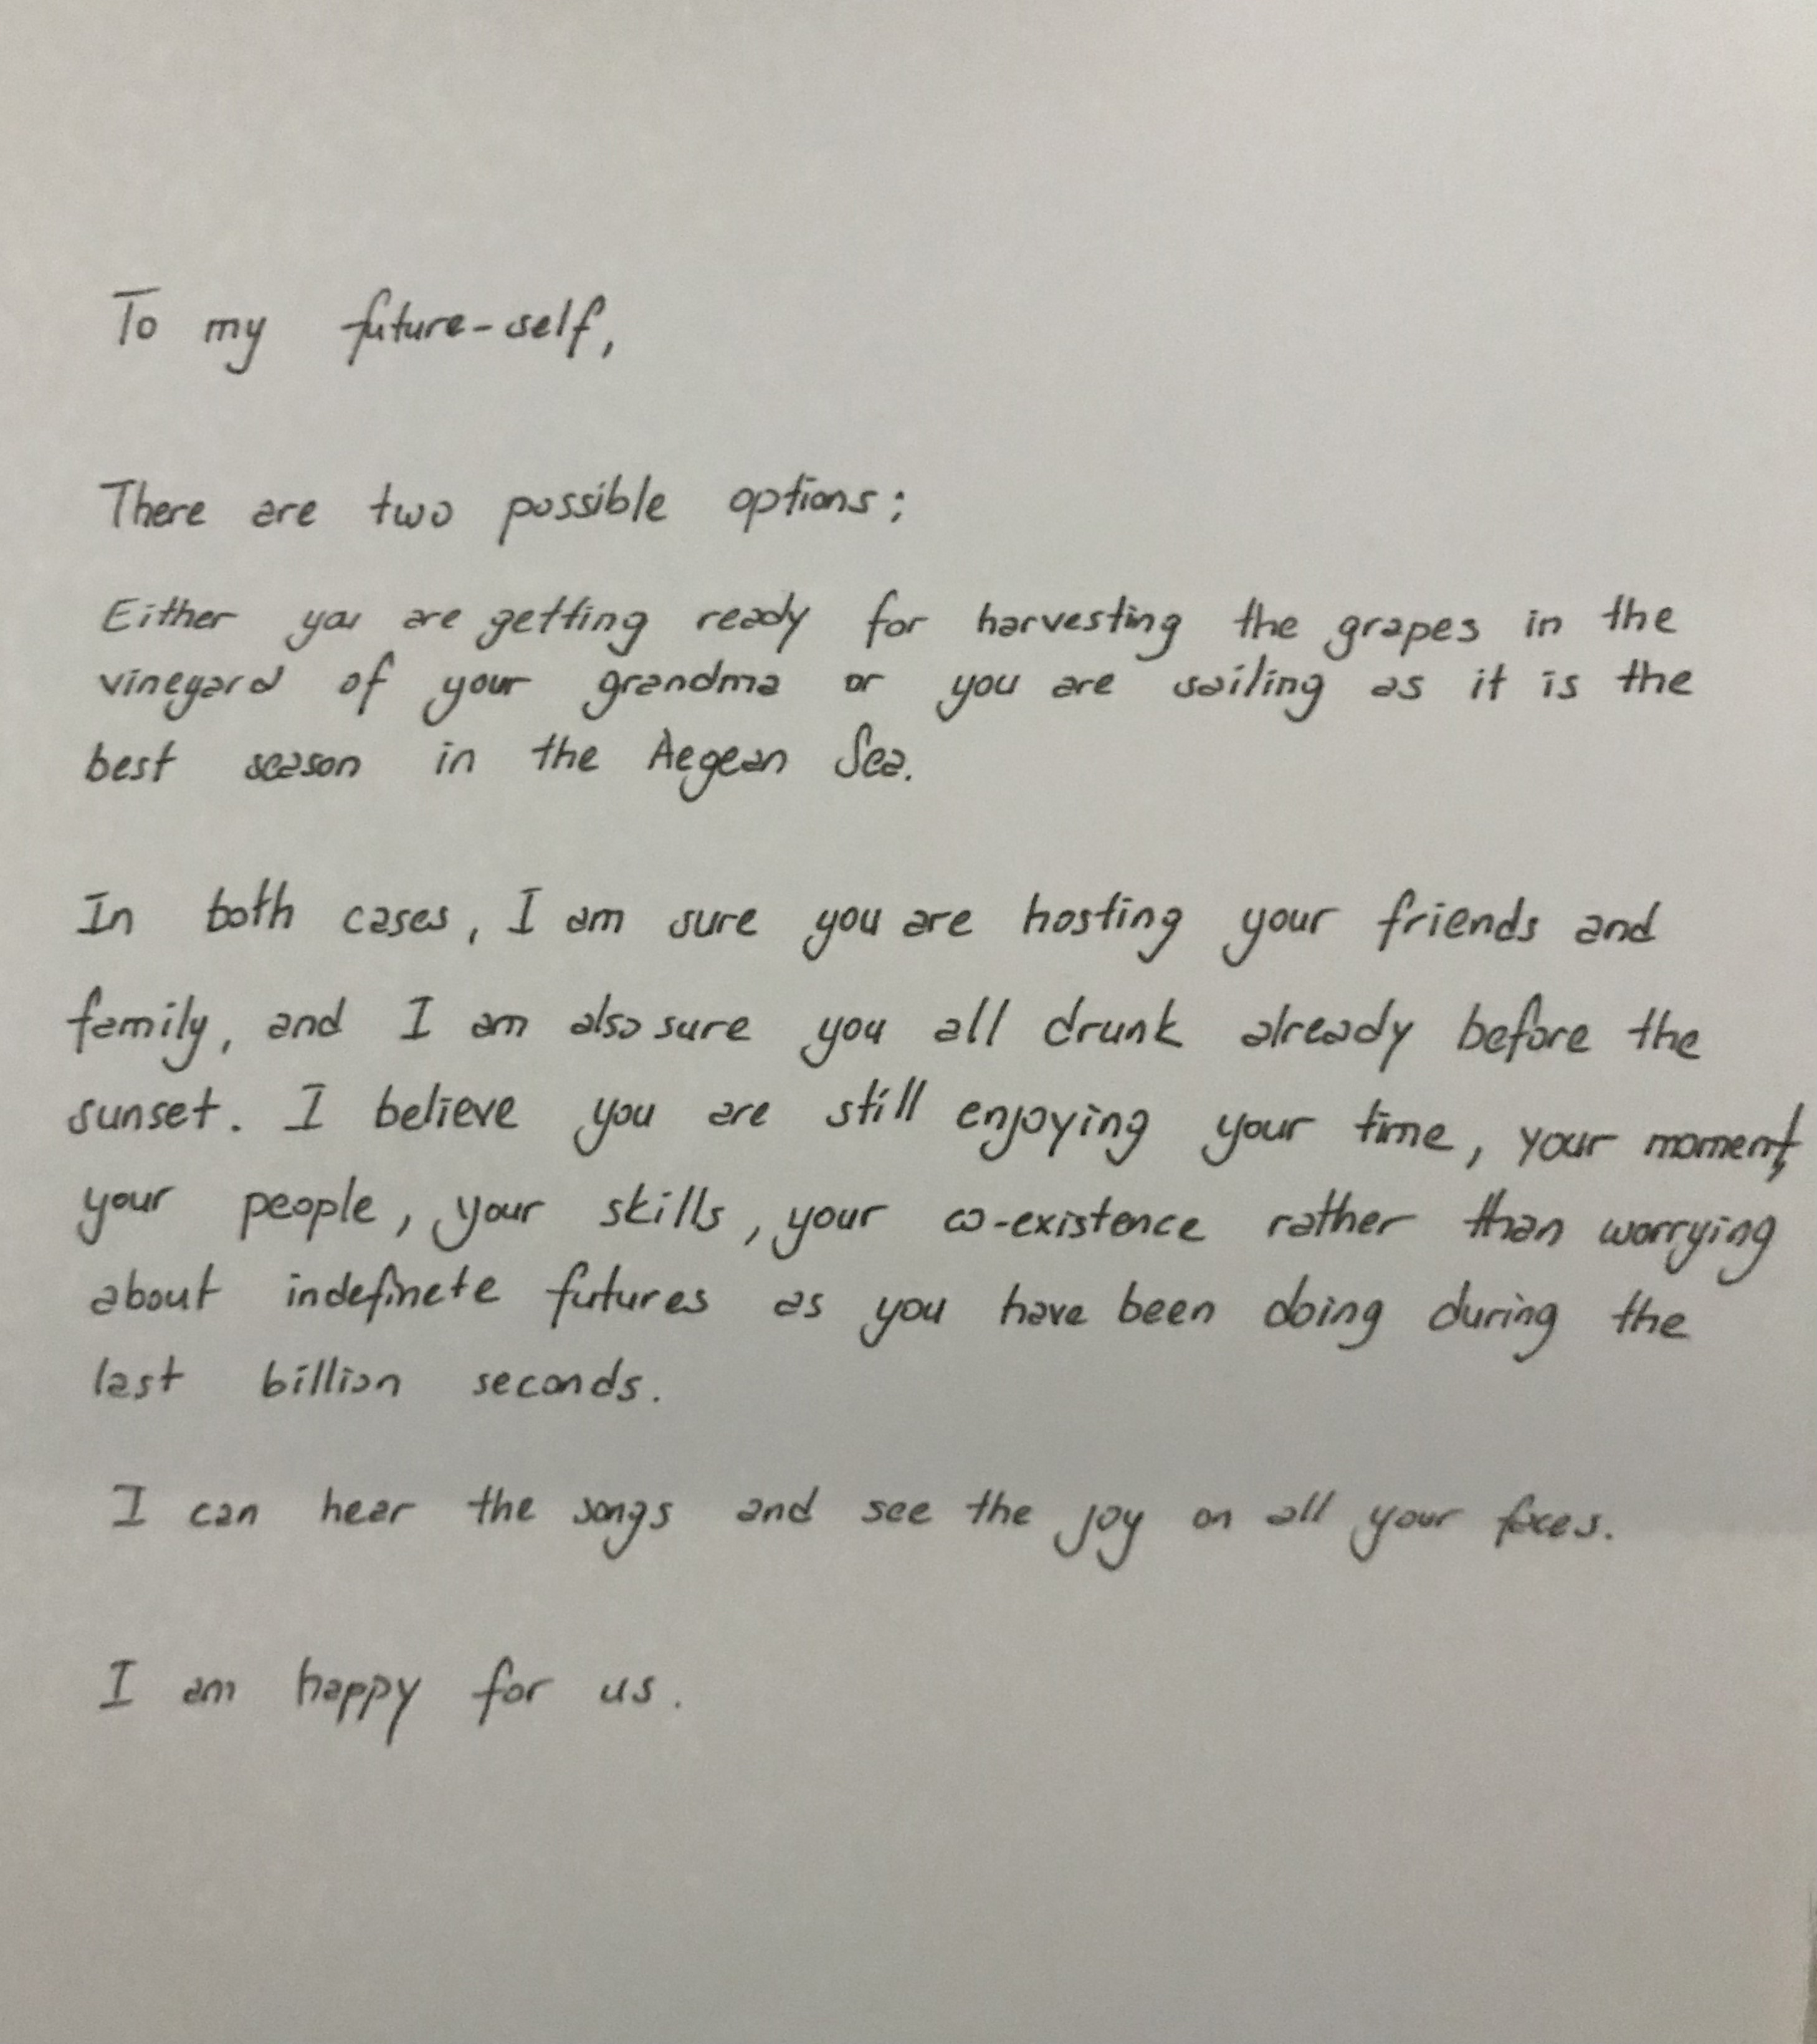 To my future-self,
There are two possible options;
Either you are getting ready for harvesting the grapes in the
vineyard of your grandma or you are sailing as it is the
best season in the Aegean Sea.
In both cases, I am sure you are hosting your friends and
family, and I am also sure you all drunk already before the
sunset. I believe you are still enjoying your time, your moment,
your people, your skills, your co-existence rather than worrying
about indefinete futures as you have been doing during the
last billion seconds.
I can hear the songs and see the joy on all your faces.
I am happy for us.